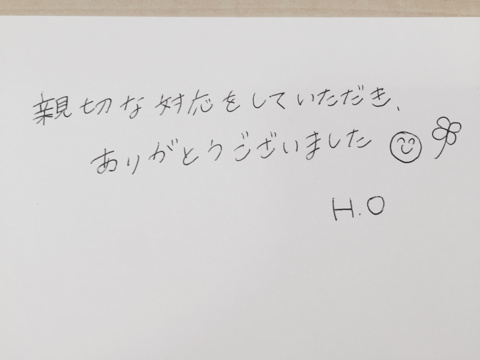 親切な対応をしていただき、
ありがとうございました
H.O